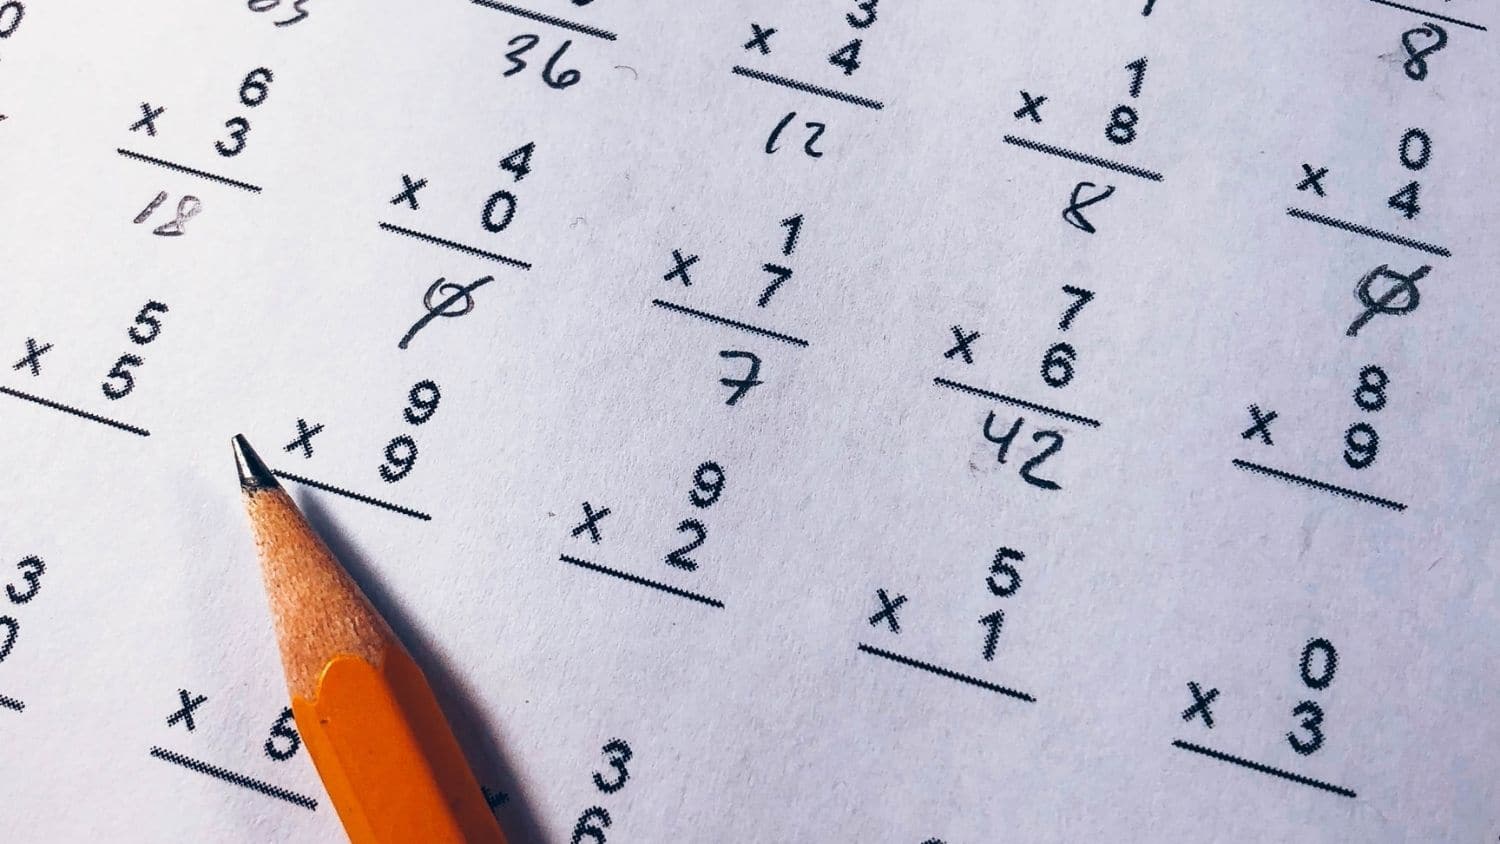 36
3
x 4
12
8
6
x 3
18
4
x 0
0
1
x 7
7
1
x 8
8
0
x 4
0
5
x 5
9
x 9
9
x 2
7
x 6
42
8
x 9
3
x 5
5
x 1
0
x 3
3
6